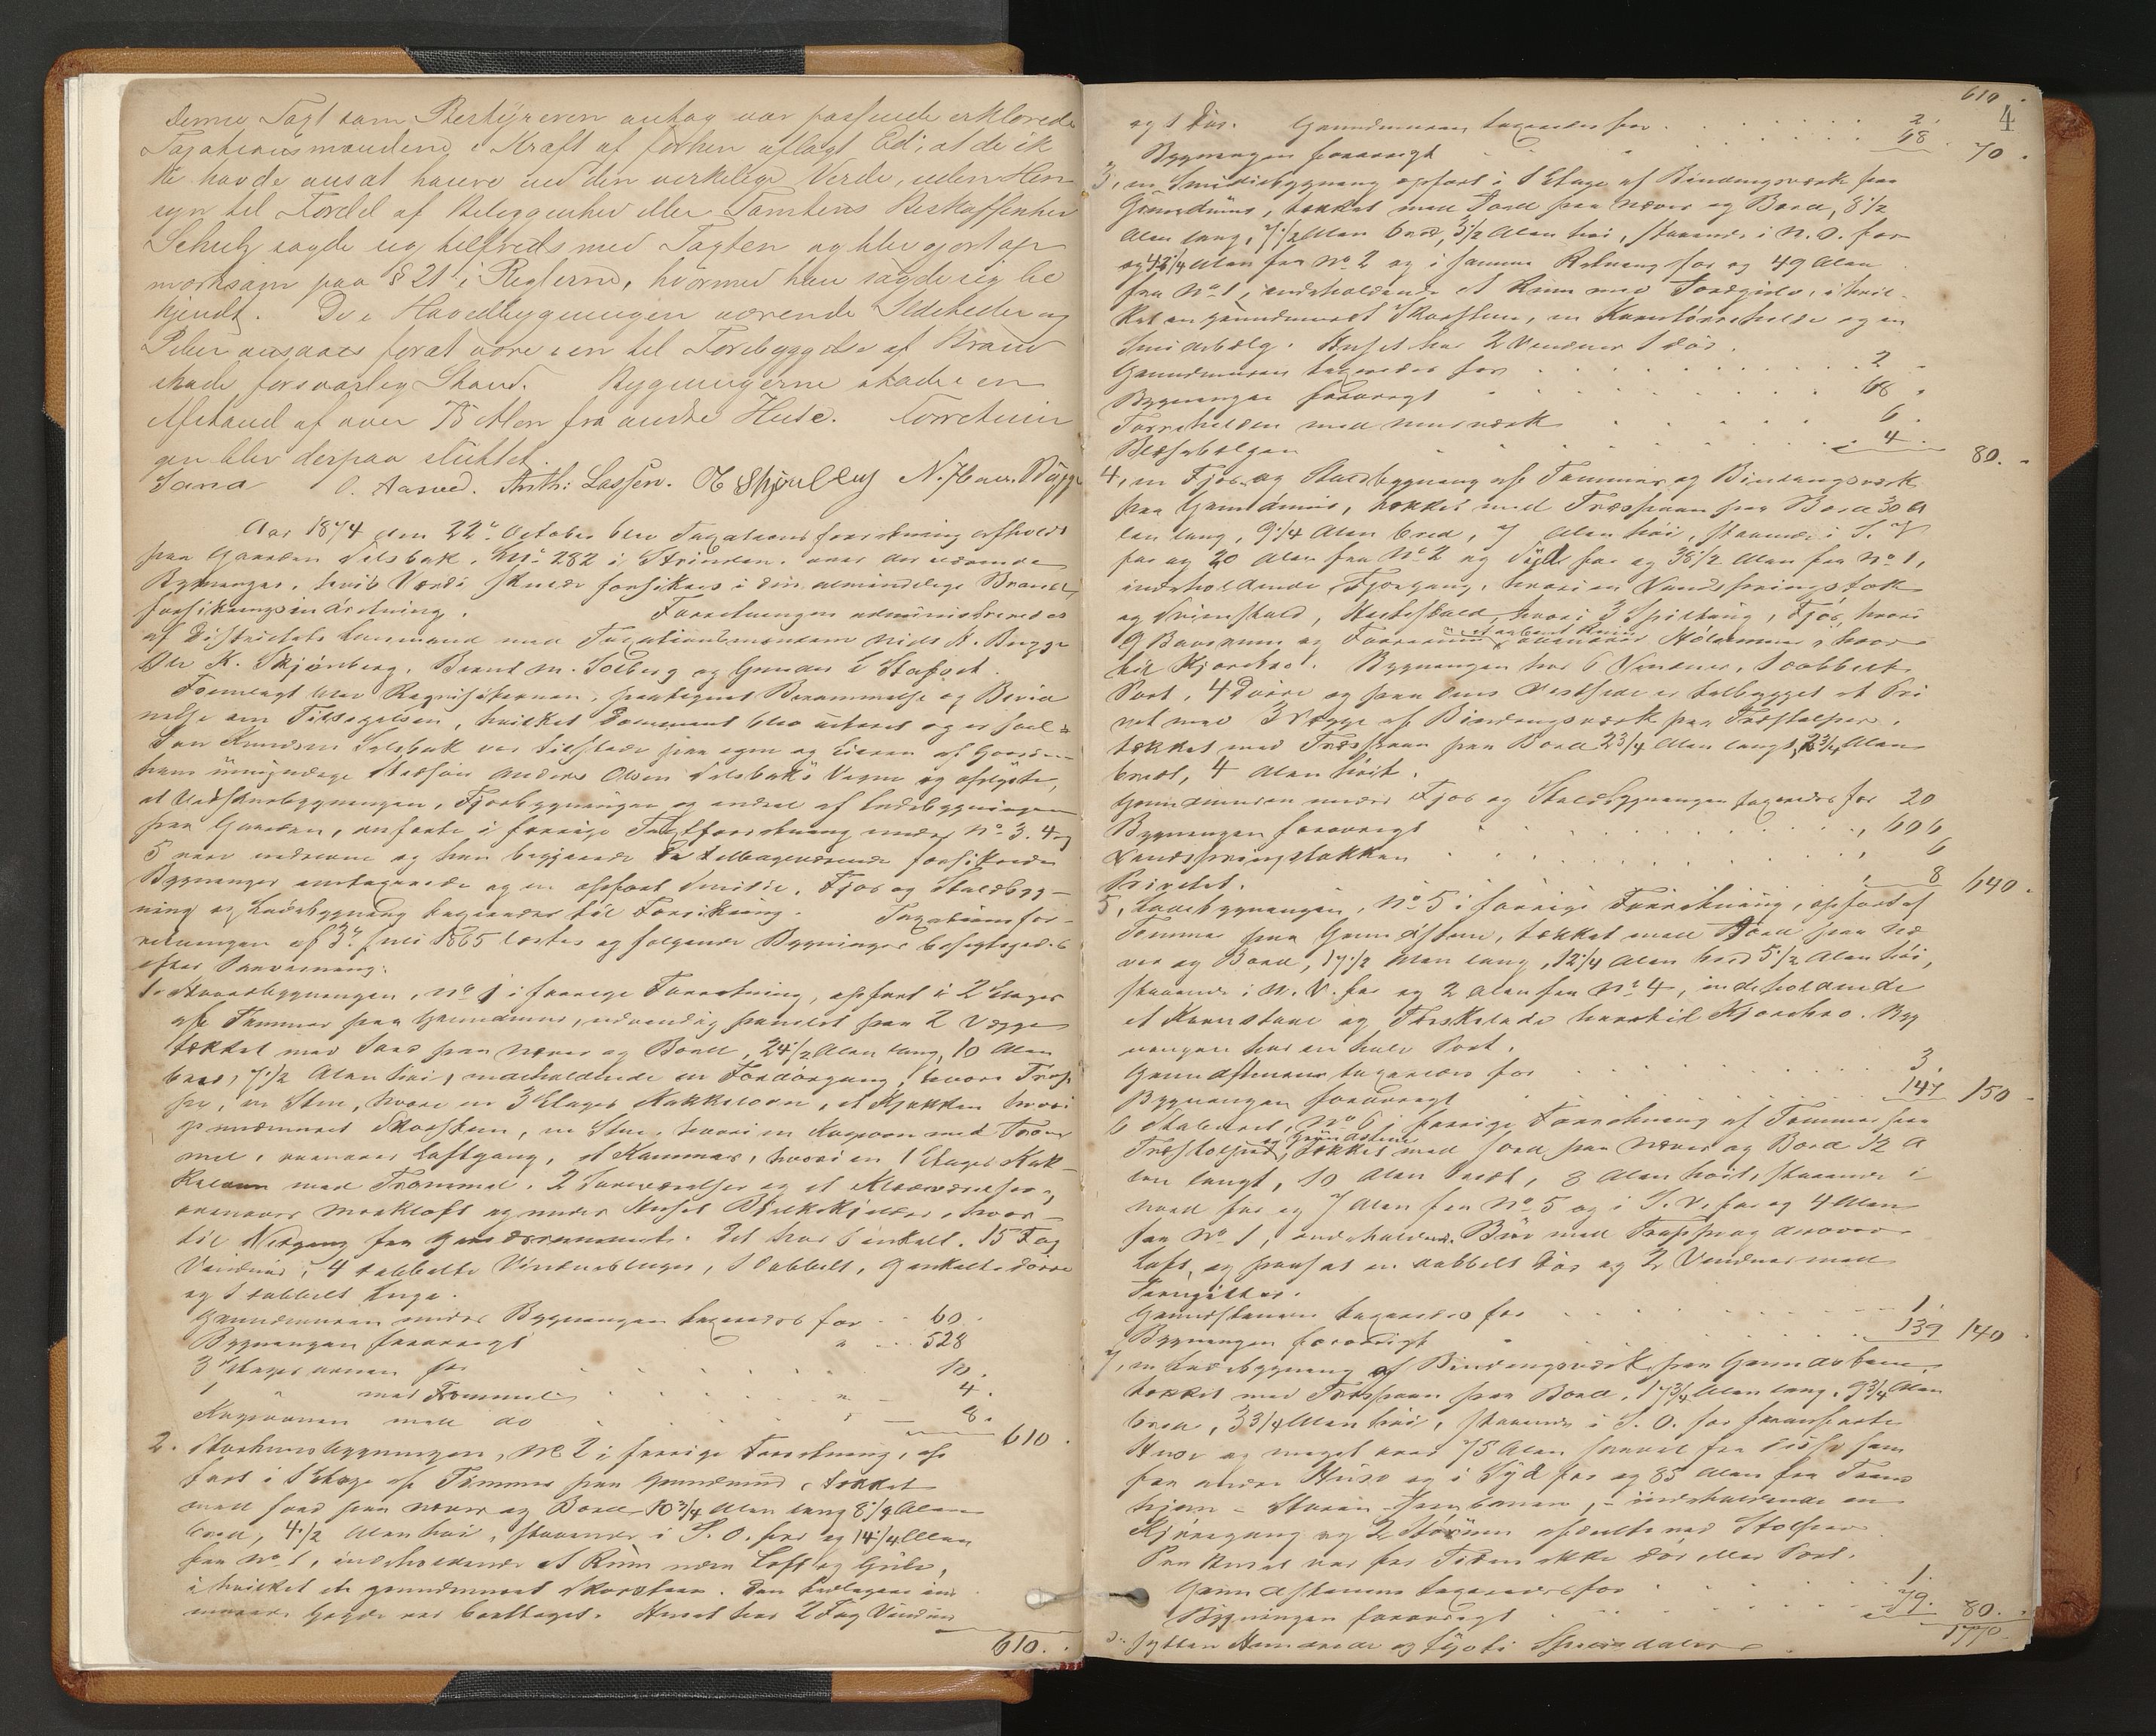 denne Taxt som Bestyreren antog var passende erklærede
Taxationsmændene i Kraft af forhen aflagt Ed, at de ik
ke havde ansat høiere end den virkelige Værdi, uden Hen
syn til Fordel af Beliggenhed eller Tomtens Beskaffenhed
Schulz sagde sig tilfreds med Taxten og blev gjort op
mærksom paa § 21 i Reglerne, hvormed han sagde sig be
kjendt. De i Hovedbygningen værende Ildsteder og
Piber ansaaes forat være i en til Forebyggelse af Brand
skade forsvarlig Stand. Bygningerne stade i en
Afstand af over 75 Alen fra andre Huse. Forretnin
gen blev derpaa sluttet.
O. Aasved. Anth: Lassen. O E Skjølberg N. Hans. Bugge
Aar 1874 den 22de October blev Taxationsforretning afholdt
paa Gaarden Selsbak, Mt. No 282 i Strinden over der værende
Bygninger, hvis Værdi skulde forsikres i den almindelige Brand
forsikringsindretning. Forretningen administreredes
af Distriktets Lensmand med Taxationsmændene Niels H. Bugge
Ole K. Skjønberg, Bernt M. Solberg og Gunder L Stafset.
Fremlagt blev Requisitionen, paategnet Berammelse og Bevid
nelse om Tilsigelsen, hvilket Document blev læst og er saal:
Jon Knudsen Selsbak var tilstede paa egen og Eieren af Gaarden
hans umyndige Stedsøn Anders Olsen Selsbak's Vegne og oplyste,
at Vaaningsbygningen, Fjøsbygningen og endeel af Ladebygningen
paa Gaarden, anførte i forrige Taxtforretning under No 3. 4 og
5 vare nedrevne og han begjærede de tilbageværende forsikrede
Bygninger omtaxerede og en opført Smidie, Fjøs og Staldbyg-
ning og Ladebygning taxerede til Forsikring. Taxationsfor-
retningen af 3de Juli 1865 læstes og følgende Bygninger besigtigedes
efter Paaviisning:
1. Hovedbygningen, No 1 i forrige Forretning, opført i 2 Etager
af Tømmer paa Grundmuur, udvendig panelet paa 2 Vægge
tækket med Jord paa Næver og Bord, 24 1/2 Alen lang, 10 Alen
bred, 7 1/2 Alen høi, indeholdende en Fordørgang, hvori Trap
pe, en Stue, hvori en 3 Etages Kakkelovn, et Kjøkken hvori
grundmuret Skorsten, en Stue, hvori en Kogeovn med Trom
mel, ovenover Loftgang, et Kammer, hvori en 1 Etages Kak-
kelovn med Trommel, 2 Soveværelser og et Klædeværelse,
ovenover Mørkloft og under Huset Bjelkekjelder, hvor-
til Nedgang fra Gaardsrummet. Det har 6 enkelt. 15 Fag
Vinduer, 4 dobbelte Vindueslugger, 1 dobbelt, 9 enkelte Døre
og 1 dobbelt Luge.
Grundmuren under Bygningen taxeredes for 60.
Bygningen forøvrigt " 528
3 Etages ovnen for 10.
1 " med Trommel " 4.
Kogeovnen med do " 8. 610.
2. Storhusbygningen, No 2 i forrige Forretning, op
ført i 1 Etage af Tømmer paa Grundmuur, tækket
med Jord paa Næver og Bord 10 3/4 Alen lang 8 1/4 Alen
bred, 4 1/2 Alen høi, staaende i S. O. for og 14 1/4 Alen
fra No 1, indeholdende et Rum uden Loft og Gulv,
i hvilket en grundmuret Skorsten. Den tidligere ind
murede Gryde var borttaget. Huset har 2 Fag Vinduer
610.
610.
4
og 1 Dør. Grundmuren taxeredes for 2.
Bygningen forøvrigt 68 70.
3, en Smidiebygning opført i 1 Etage af Bindingsværk paa
Grundmuur, tækket med Jord paa Næver og Bord, 8 1/2
Alen lang, 7 1/2 Alen bred, 3 1/2 Alen høi, staaende i N. O. for
og 43 1/4 Alen fra No 2 og i samme Retning for og 49 Alen
fra No 1, indeholdende et Rum med Jordgulv, i hvil-
ket en grundmuret Skorsten, en Korntørrehelle og en
Smidiebelg. Huset har 2 Vinduer 1 Dør.
Grundmuren taxeredes for 2
Bygningen forøvrigt 68
Tørrehellen med Muurværk 6.
Blæsebælgen 4. 80.
4, en Fjøs- og Staldbygning af Tømmer og Bindingsværk
paa Grundmuur, tækket med Træspaan paa Bord 30 A
len lang, 9 1/4 Alen bred, 7 Alen høi, staaende i S. V
for og 20 Alen fra No 2 og Syd for og 38 1/2 Alen fra No 1,
indeholdende Fjøsgang, hvori en Vandspringstok
og Svinestald, Hestestald, hvori 3 Spiltaug, Fjøs, hvori
9 Baasrum og Faarerum et ophent Rum ovenover Hølemmer, hvor
til Kjørebro. Bygningen har 6 Vinduer, 1 dobbelt
Port, 4 Døre og paa dens Vestside er tilbygget et Pri
vet med 3 Vægge af Bindingsværk paa Træstolper,
tækket med Træspaan paa Bord 2 3/4 Alen langt, 2 3/4 Alen
bredt, 4 Alen høit.
Grundmuren under Fjøs og Staldbygningen taxeredes for 20
Bygningen forøvrigt " 606
Vandspringstokken " 6
Privetet. " 8 640.
5, Ladebygningen, No 5 i forrige Forretning, opført af
Tømmer paa Grundstene, tækket med Jord paa Næ
ver og Bord, 17 1/2 Alen lang, 12 1/4 Alen bred 5 1/2 Alen høi,
staaende i N. V. for og 2 Alen fra No 4, indeholdende
et Kornstaal og Tærskelade hvortil Kjørebro. Byg
ningen har en halv Port.
Grundstenene taxeredes for 3.
Bygningen forøvrigt 147 150
6 Staburet, No 6 i forrige Forretning af Tømmer paa
Træstolper og Grundstene, tækket med Jord paa Næver og Bord 12 A
len langt, 10 Alen bredt, 8 Alen høit, staaende i
Nord for og 7 Alen fra No 5 og i S. V. for og 4 Alen
fra No 1, indeholdende Bur med Trappe og derover
Loft, og paasat en dobbelt Dør og 2 Vinduer med
Jerngitter.
Grundstenene taxeredes for 1.
Bygningen forøvrigt 139 140
7, en Ladebygning af Bindingsværk paa Grundstene,
tækket med Træspaan paa Bord, 17 3/4 Alen lang, 9 3/4 Alen
bred, 3 3/4 Alen høi, staaende i S. O. for foranførte
Huse og meget over 75 Alen saavel fra disse som
fra andre Huse og i Syd for og 85 Alen fra Trond
hjem - Støren - Jernbanen, - indeholdende en
Kjøregang og 2 Hørum afdeelte ved Stolper.
Paa Huset var for Tiden ikke Dør eller Port.
Grundstenene taxeredes for 1.
Bygningen forøvrigt 79. 80.
1770.
Sytten Hundrede og Sytti Speciedaler